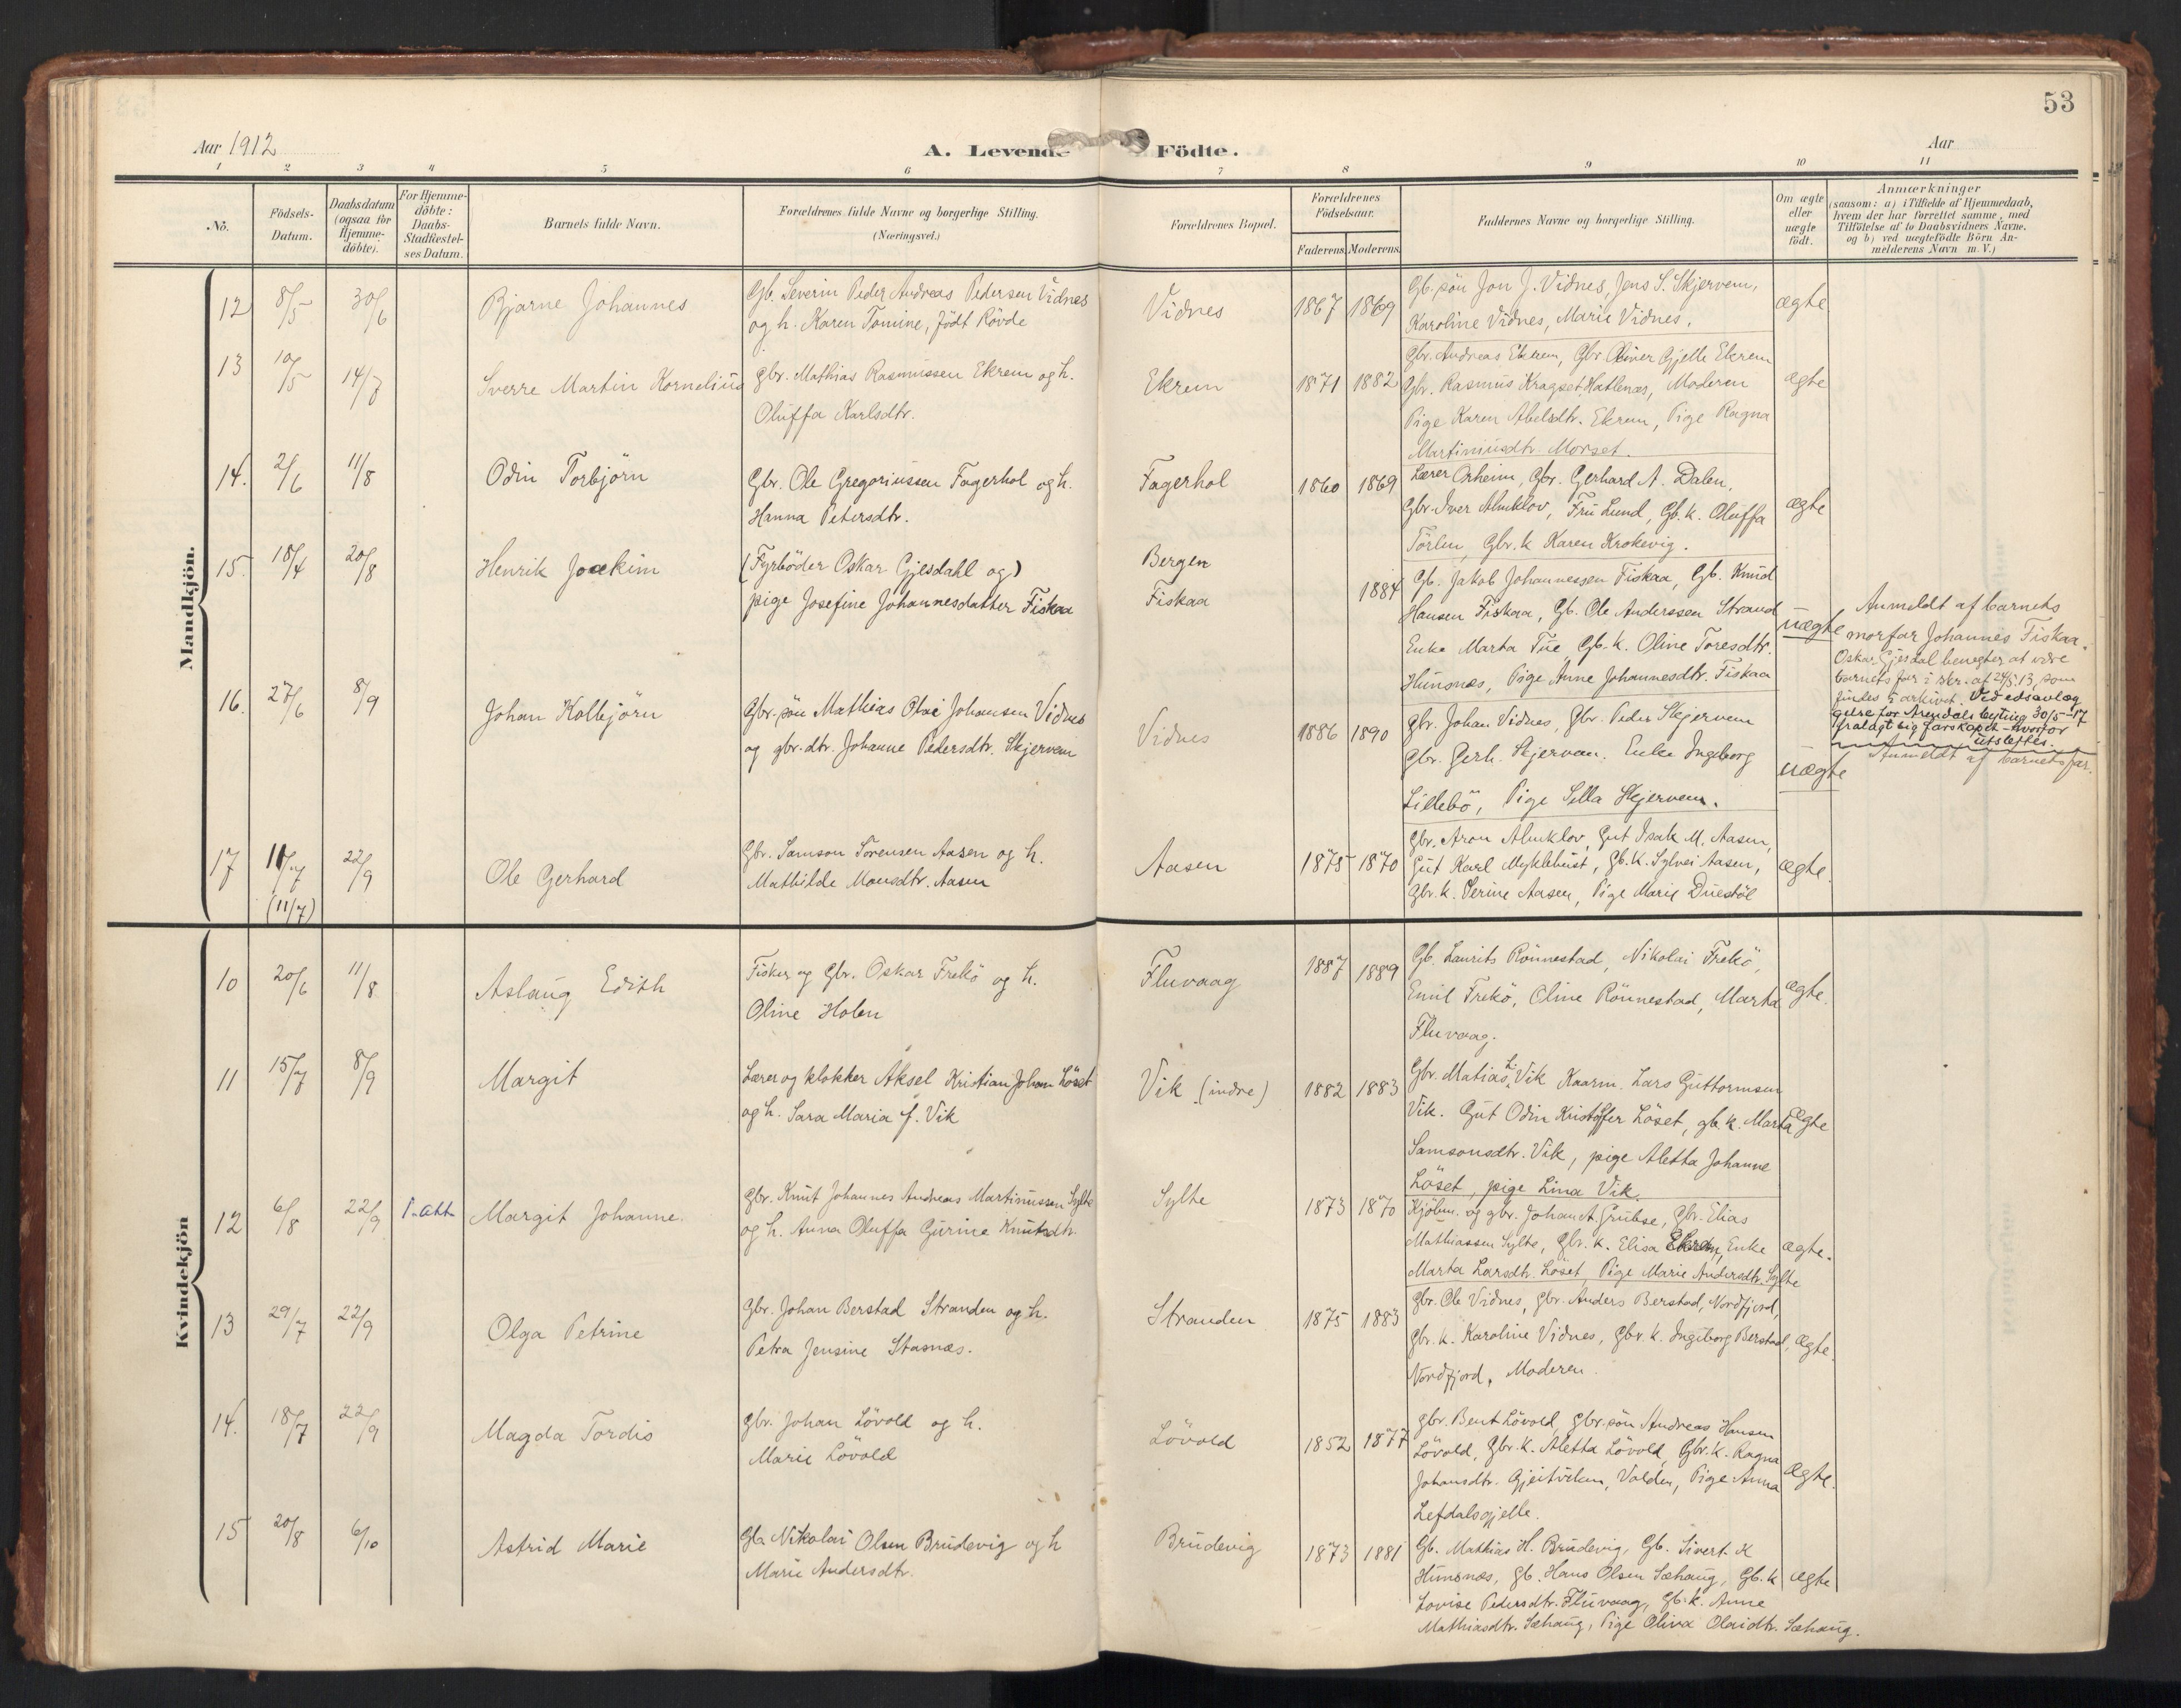 53
Aar 1912
A. Levende Födte.
Aar
1 2 3 4 5 6 7 8 9 10 11
No.
Födsels-
Datum.
Daabsdatum
(ogsaa for
Hjemme-
döbte).
For Hjemme-
döbte:
Daabs-
Stadfæstel-
ses Datum.
Barnets fulde Navn.
Forældrenes fulde Navne og borgerlige Stilling.
(Næringsvei.)
Forældrenes Bopæl.
Forældrenes
Födselsaar.
Faderens. Moderens.
Faddernes Navne og borgerlige Stilling.
Om ægte
eller
uægte
födt.
Anmærkninger
(saasom: a) i Tilfælde af Hjemmedaab,
hvem der har forrettet samme, med
Tilföielse af to Daabsvidners Navne.
og b) ved uægtefödte Börn An-
melderens Navn m. V.)
Mandkjön.
12 8/5 30/6 Bjarne Johannes
Gb. Severin Peder Andreas Pedersen Vidnes
og h. Karen Tomine, födt Rövde
Vidnes 1867 1869
Gb. sön Jon J. Vidnes, Jens S. Skjervem,
Karoline Vidnes, Marie Vidnes.
ægte
13 10/5 14/7 Sverre Martin Kornelius
Gbr. Mathias Rasmussen Ekrem og h.
Oluffa Karlsdtr.
Ekrem 1871 1882
Gbr. Andreas Ekrem, Gbr. Oliver Gjelle Ekrem
Gbr. Rasmus Kragset, Hatlenæs, Moderen
Pige Karen Abelsdtr. Ekrem, Pige Ragna
Martinusdtr. Morset.
ægte
14. 2/6 11/8 Odin Torbjörn
Gbr. Ole Gregoriussen Fagerhol og h.
Hanna Petersdtr.
Fagerhol 1860 1869
Lærer Orheim, Gbr. Gerhard A. Dalen,
Gbr. Iver Almklov, Fru Lund, Gb. k. Oluffa
Törlen, Gbr. k Karen Krokevig.
ægte
15. 18/4 20/8 Henrik Joakim
(Fyrböder Oskar Gjesdahl og)
pige Josefine Johannesdatter Fiskaa
Bergen
Fiskaa
1884
Gb. Jakob Johannessen Fiskaa, Gb. Knud
Hansen Fiskaa, Gb. Ole Anderssen Strand
Enke Marta Tue, Gb. k. Oline Toresdtr.
Hunsnes, Pige Anne Johannesdtr. Fiskaa
uægte
Anmeldt af barnets
morfar Johannes Fiskaa.
Oskar Gjesdal benegter at være
barnets far i skr. af 24/5.13, som
findes i arkivet. Ved edsavlæg
gelse for Arendals byting 30/5-17
fralagt sig farskapet - hvorfor
utslettes.
16. 27/6 8/9 Johan Kolbjörn
Gbr. sön Mathias Olai Johansen Vidnes
og gbr. dtr. Johanne Pedersdtr. Skjervem
Vidnes 1886 1890
Gbr. Johan Vidnes, Gbr. Peder Skjervem
Gbr. Gerh. Skjervem. Enke Ingeborg
Lillebö, Pige Sella Skjervem.
uægte
Anmeldt af barnets far.
17 11/7 22/9 Ole Gerhard
(11/7)
Gbr. Samson Sörensen Aasen og h.
Mathilde Monsdtr. Aasen
Aasen 1875 1870
Gbr. Aron Almklov, Gut Isak M. Aasen,
Gut Karl Myklebust, Gb. k. Sylvei Aasen,
Gbr. k. Serine Aasen, Pige Marie Duestöl
ægte.
Kvindekjön
10 20/6 11/8 Aslaug Edith
Fisker og Gbr. Oskar Frekö og h.
Oline Holen
Fluvaag 1887 1889
Gb. Laurits Rönnestad, Nikolai Frekö,
Emil Frekö, Oline Rönnestad, Marta
Fluvaag.
ægte.
11 15/7 8/9 Margit
Lærer og klokker Aksel Kristian Johan Löset
og h. Sara Maria f. Vik
Vik (indre) 1882 1883
Gbr. Matias L. Vik Kaarm. Lars Guttormsen
Vik. Gut Odin Kristoffer Löset, gb. k. Marta
Samsonsdtr. Vik, pige Aletta Johanne
Löset, pige Lina Vik.
Ægte
12 6/8 22/9 P. att. Margit Johanne.
Gbr. Knut Johannes Andreas Martinussen Sylte
og h. Anna Oluffa Gurine Knutsdtr.
Sylte 1873 1870
Kjöbm. og gbr. Johan A. Grubse, Gbr. Elias
Mathiassen Sylte, Gbr. k. Elisa Ekrem, Enke
Marta Larsdtr. Löset, Pige Marie Andersdtr. Sylte
ægte.
13 29/7 22/9 Olga Petrine
Gbr. Johan Berstad Stranden og h.
Petra Jensine Stasnæs.
Stranden 1875 1883
Gbr. Ole Vidnes, Gbr. Anders Berstad, Nordfjord,
Gbr. k. Karoline Vidnes, Gbr. k. Ingeborg Berstad,
Nordfjord, Moderen.
ægte.
14. 18/7 22/9 Magda Tordis
Gbr. Johan Lövold og h.
Marie Lövold
Lövold 1852 1877
Gbr. Bent Lövold, Gbr. sön Andreas Hansen
Lövold, Gbr. k. Aletta Lövold, Gbr. k. Ragna
Johansdtr. Gjeitviken, Volden, Pige Anna
Lefdalsgjelle.
Ægte.
15 20/8 6/10 Astrid Marie
Gb. Nikolai Olsen Brudevig og h
Marie Andersdtr.
Brudevig 1873 1881
Gb. Mathias H. Brudevig, Gb. Sivert K
Hunsnæs, Gb. Hans Olsen Sæhaug, Gb. k
Lovise Pedersdtr. Fluvaag, Gb. k. Anne
Mathiasdtr. Sæhaug, Pige Oliva Olaidtr. Sæhaug.
ægte